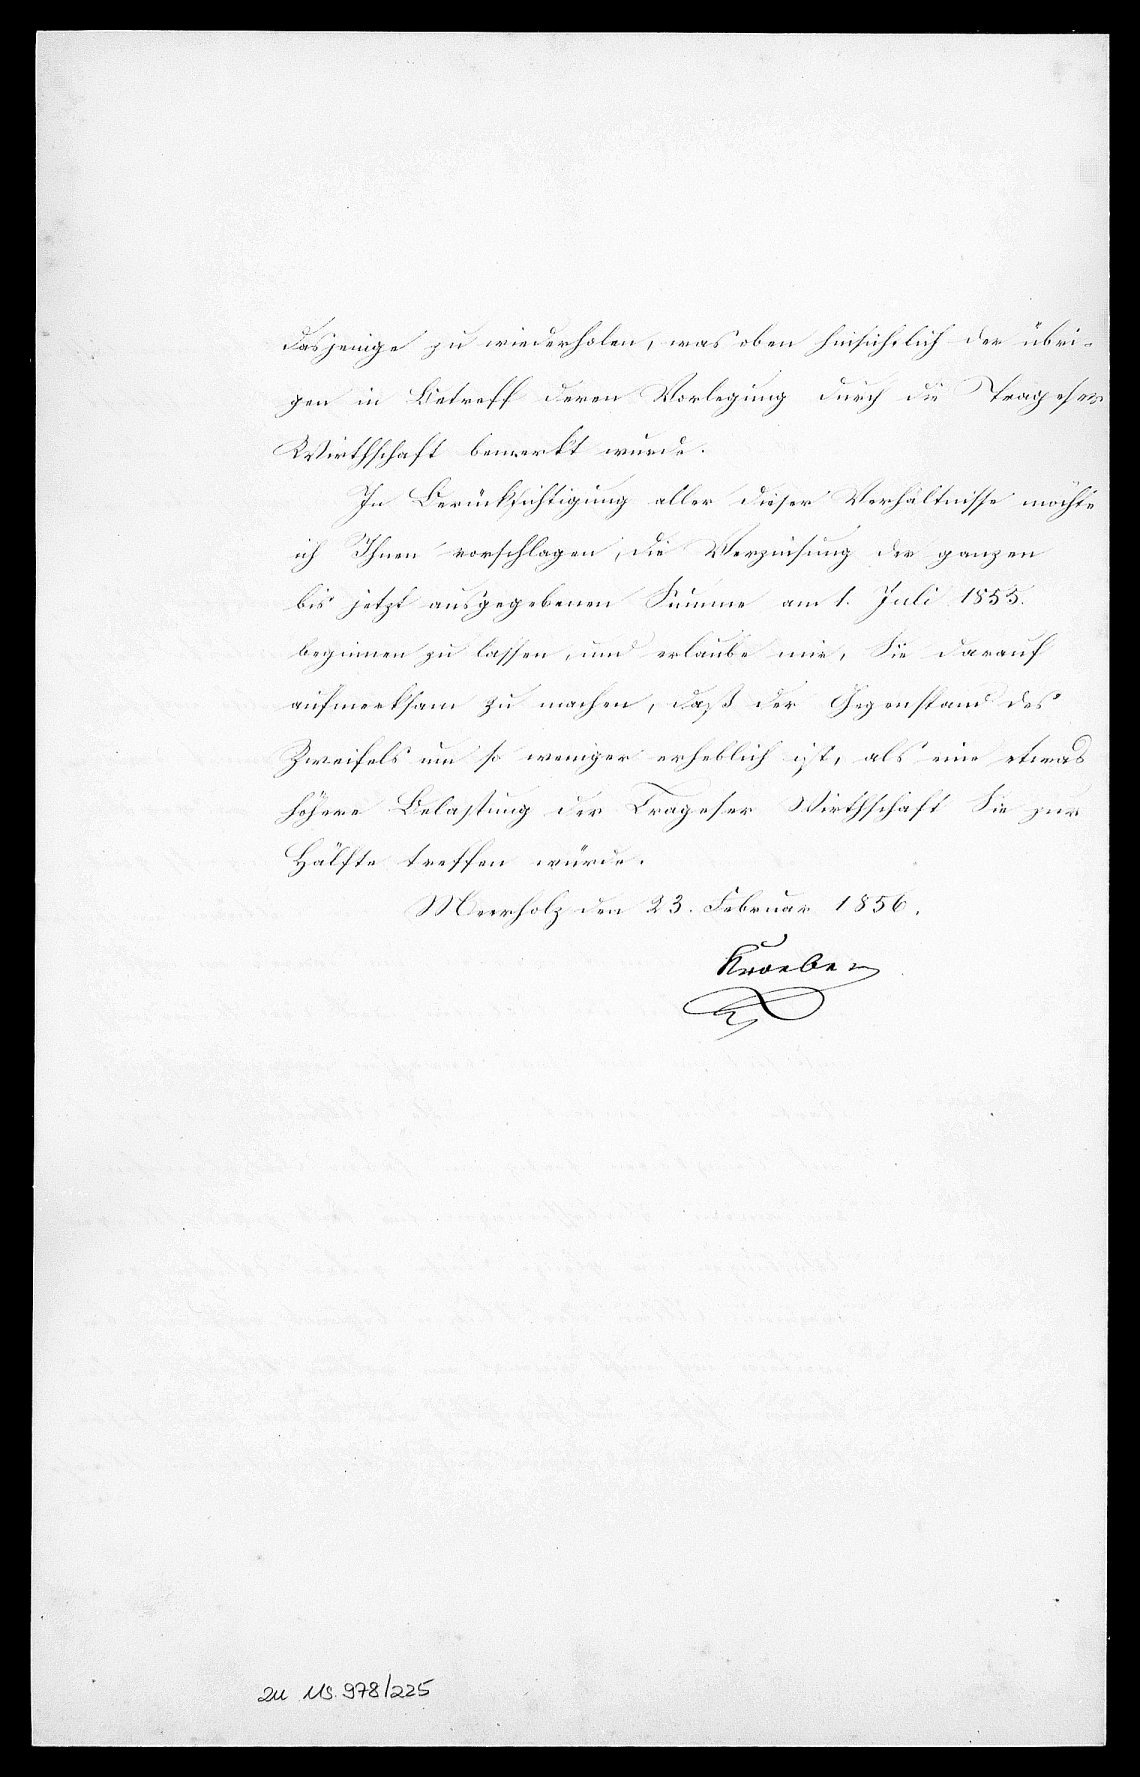 dasjenige zu wiederholen, was oben hinsichtlich der übri-
gen in Betreff deren Vorlegung durch die Trageser
Wirthschaft bemerkt wurde.
In Berücksichtigung aller dieser Verhältnisse möchte
ich Ihnen vorschlagen, die Verzinsung der ganzen
bis jetzt ausgegebenen Summe am 1. Juli 1855.
beginnen zu lassen, und erlaube mir, Sie darauf
aufmerksam zu machen, daß der Gegenstand des
Zweifels um so weniger erheblich ist, als eine etwas
höhere Belastung der Trageser Wirthschaft Sie zur
Hälfte treffen würde.
Meerholz den 23. Februar 1856.
Kroeber
zu Ms. 978/225